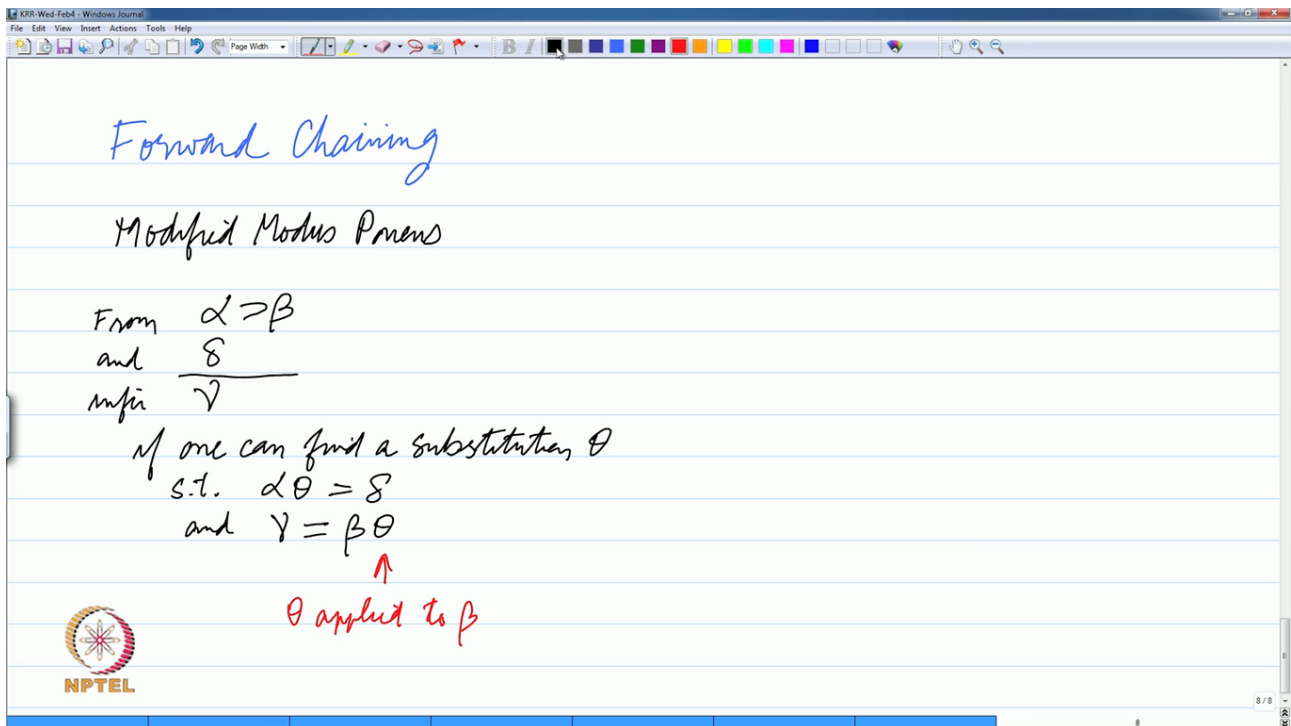 KRR-Wed-Feb4 - Windows Journal
File Edit View Insert Actions Tools Help
Page Width
B I
Forward Chaining
Modified Modus Ponens
From α ⊃ β
and δ
infer γ
if one can find a substitution θ
s.t. αθ = δ
and γ = βθ
↑
θ applied to β
NPTEL
8/8
8